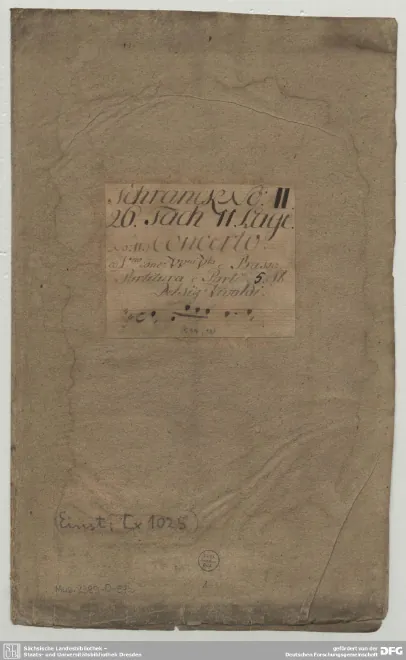 Schranck No: II.
26. Fach 11 Lage.
No. 11. Concerto
Partitura e Part: 5.
del Sig: Vivaldi.
(Einst; Cx 1028)
Mus. 2389-O-
Sächsische Landesbibliothek –
Staats- und Universitätsbibliothek Dresden
gefördert von der
Deutschen Forschungsgemeinschaft
DFG